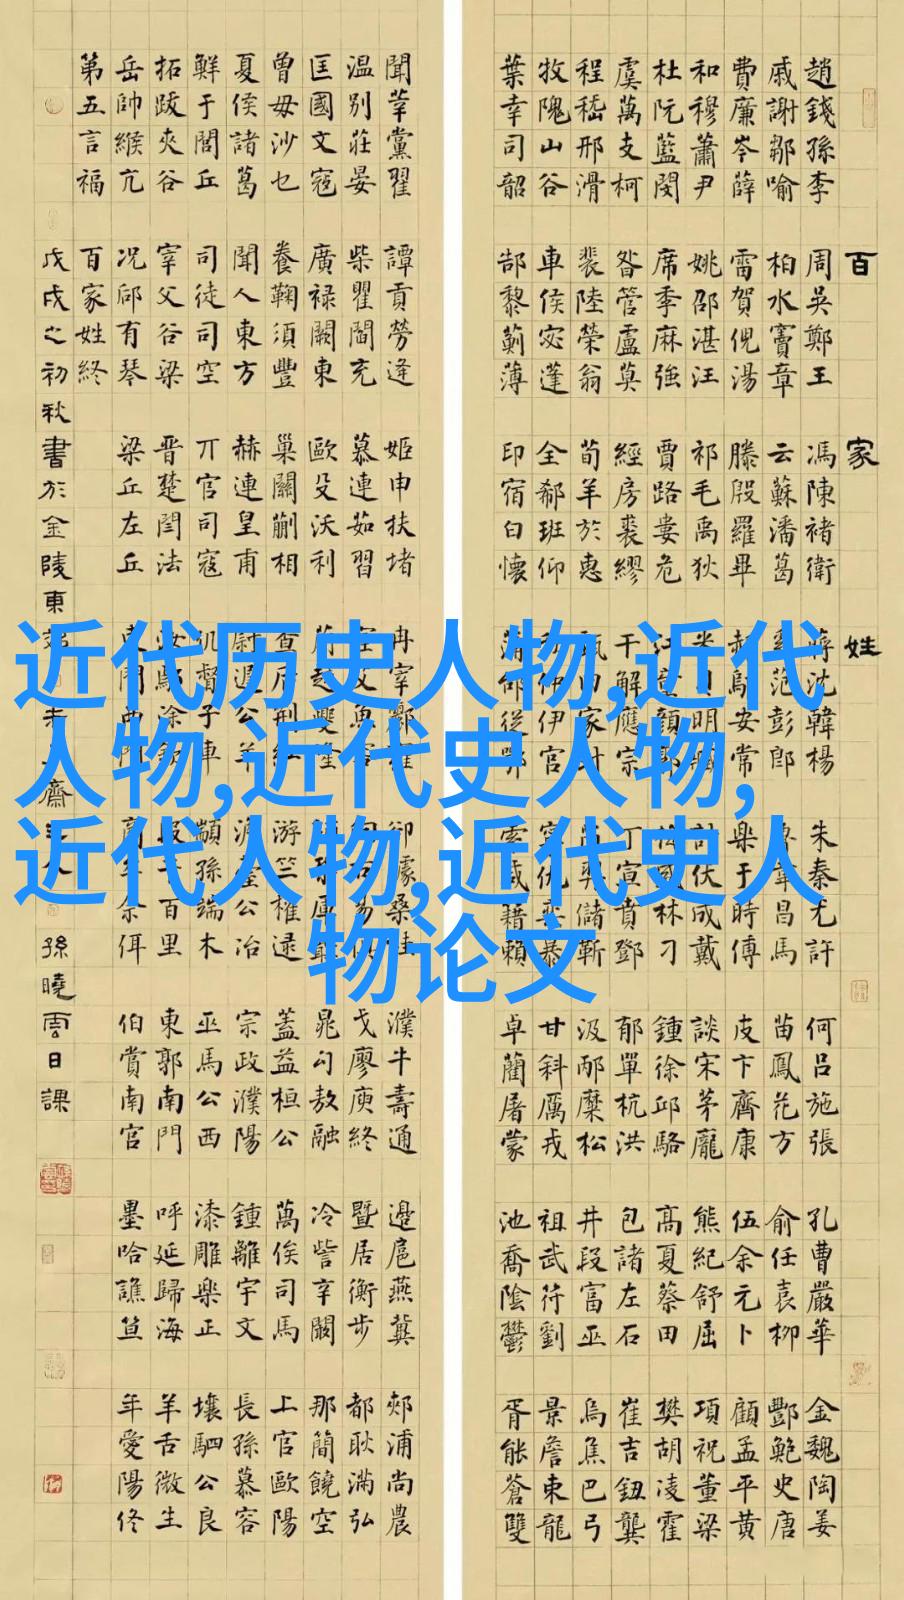 近代历史人物,近代
人物,近代史人物,
近代人物,近代史人
物论文
百家姓
趙錢孫李 周吳鄭王 馮陳褚衛 沈韓楊 朱秦尤許 何呂施張 孔曹嚴華 金魏陶姜
戚謝鄒喻 柏水竇章 云蘇潘葛 范彭郎 韋昌馬 苗鳳花方 俞任袁柳 酆鮑史唐
費廉岑薛 雷賀倪湯 滕殷羅畢 安常 樂于時傅 皮卞齊康 伍余元卜 顧孟平黃
和穆蕭尹 姚邵湛汪 祁毛禹狄 明 伏成戴 談宋茅龐 熊紀舒屈 項祝董梁
杜阮藍閔 席季麻強 賈路婁危 顏 林刁 鍾徐邱駱 高夏蔡田 樊胡凌霍
虞萬支柯 昝管盧莫 經房裘繆 干解應宗 丁宣賁鄧 郁單杭洪 包諸左石 崔吉鈕龔
程嵇邢滑 裴陸榮翁 荀羊於惠 家 儲靳 汲邴糜松 井段富巫 烏焦巴弓
牧隗山谷 車侯宓蓬 全郗班仰 仲伊宮 暴 甘斜厲戎 祖武符劉 景詹束龍
葉幸司韶 郜黎薊薄 印宿白懷 從 籍賴 卓藺屠蒙 池喬陰鬱 胥能蒼雙
聞莘黨翟 譚貢勞逄 姬申扶堵 冉宰 卻璩桑桂 濮牛壽通 邊扈燕冀 郟浦尚農
温別莊晏 柴瞿閻充 慕連茹習 魚 戈廖庾終 暨居衡步 都耿滿弘
匡國文寇 廣禄闕東 歐殳沃利 晁勾敖融 冷訾辛闞 那簡饒空
曾毋沙乜 養鞠須豐 巢關蒯相 游竺權逯 蓋益桓公 萬俟司馬 上官歐陽
夏侯諸葛 聞人東方 赫連皇甫 公 公冶 宗政濮陽 鍾離宇文 長孫慕容
鮮于閭丘 司徒司空 亓官司寇 督子車 顓孫端木 巫馬公西 漆雕樂正 壤駟公良
拓跋夾谷 宰父谷梁 晋楚閆法 涂 百里 東郭南門 呼延歸海 羊舌微生
岳帥緱亢 况郈有琴 梁丘左丘 佘佴 伯賞南宮 墨哈譙笪 年愛陽佟
第五言福 百家姓終
戊戌之初秋書於金陵東 齋 孫曉雲日課